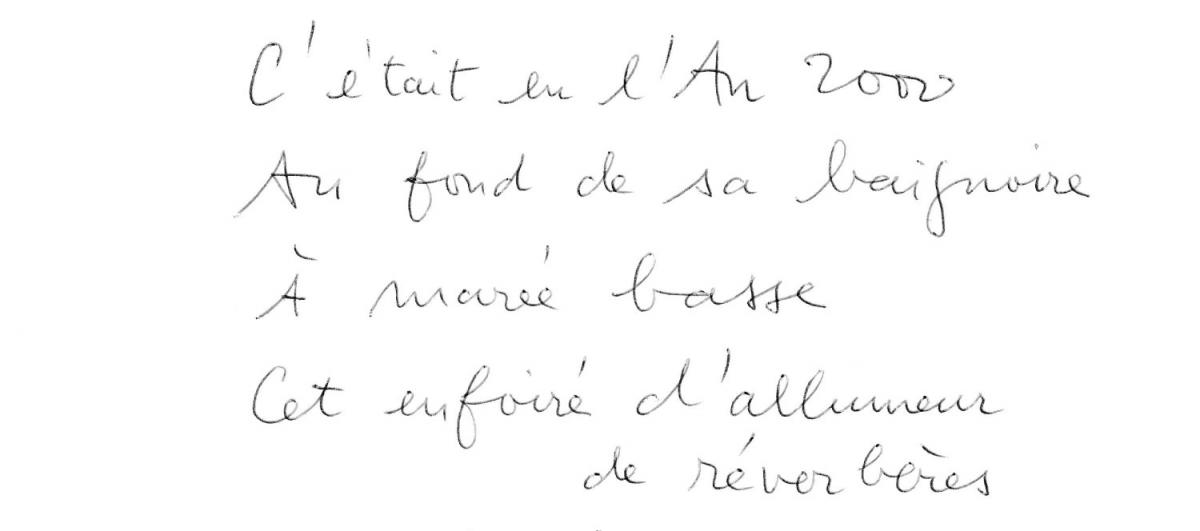 C'était en l'An 2000
Au fond de sa baignoire
À marée basse
Cet enfoiré d'allumeur
de réverbères